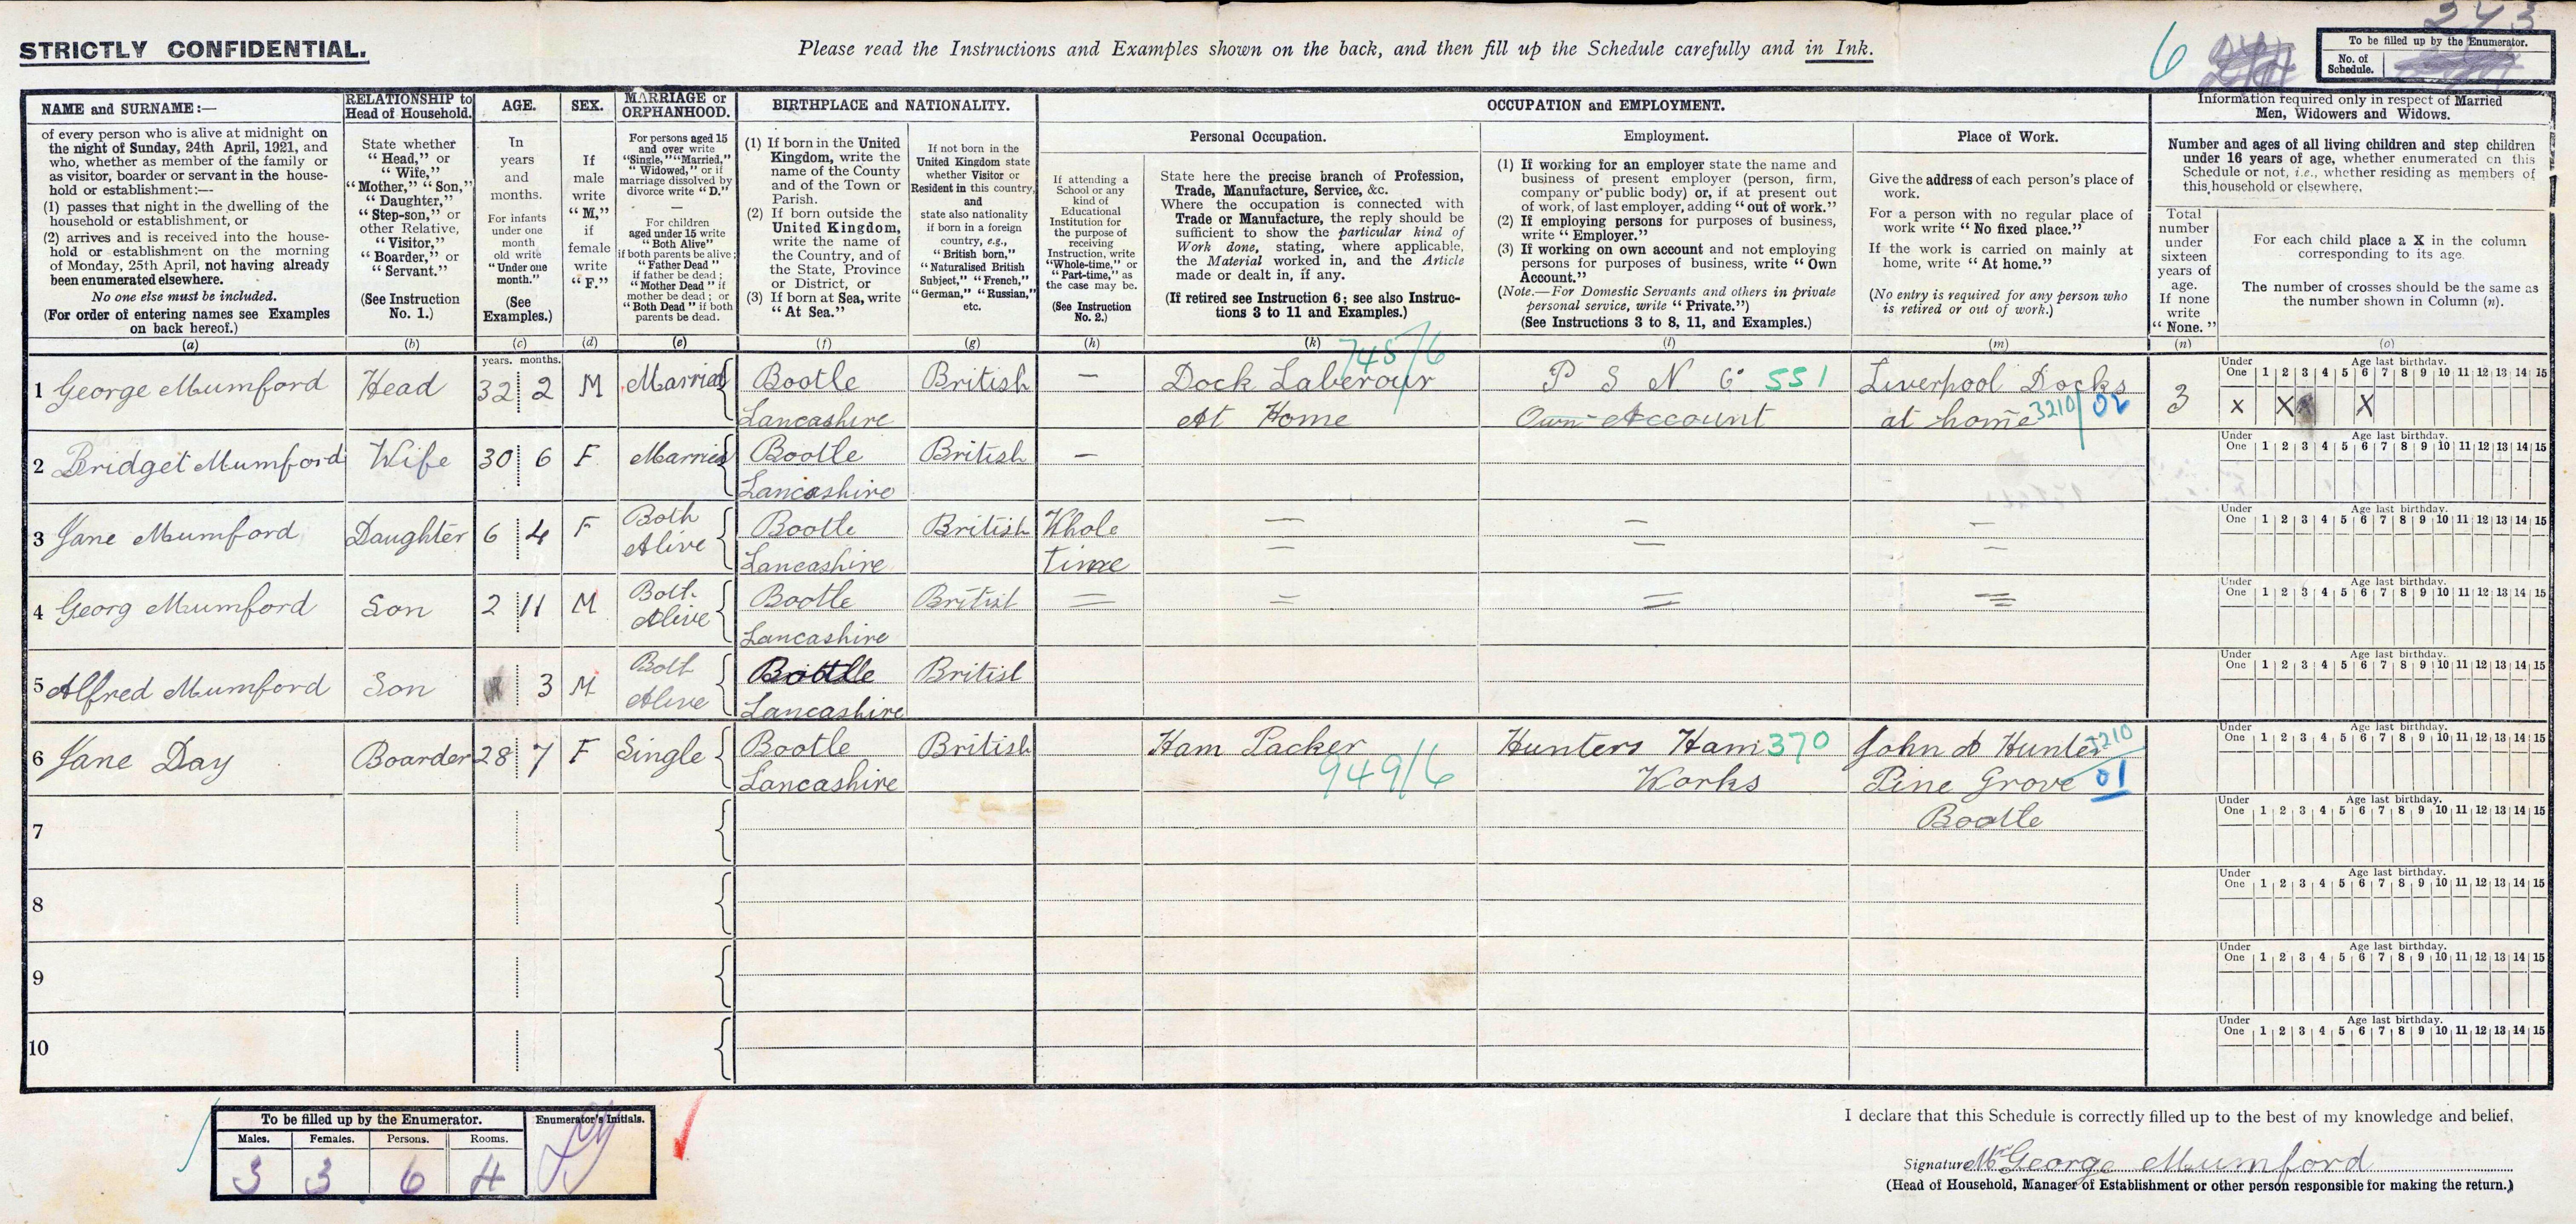 243
STRICTLY CONFIDENTIAL.
Please read the Instructions and Examples shown on the back, and then fill up the Schedule carefully and in Ink.
6
To be filled up by the Enumerator.
No. of Schedule.
NAME and SURNAME:—
of every person who is alive at midnight on
the night of Sunday, 24th April, 1921, and
who, whether as member of the family or
as visitor, boarder or servant in the house-
hold or establishment:—
(1) passes that night in the dwelling of the
household or establishment, or
(2) arrives and is received into the house-
hold or establishment on the morning
of Monday, 25th April, not having already
been enumerated elsewhere.
No one else must be included.
(For order of entering names see Examples
on back hereof.)
(a)
RELATIONSHIP to
Head of Household.
State whether
"Head," or
"Wife,"
"Mother," "Son,"
"Daughter,"
"Step-son," or
other Relative,
"Visitor,"
"Boarder," or
"Servant."
(See Instruction
No. 1.)
(b)
AGE.
In
years
and
months.
For infants
under one
month
old write
"Under one
month."
(See
Examples.)
(c)
SEX.
If
male
write
"M,"
if
female
write
"F."
(d)
MARRIAGE or
ORPHANHOOD.
For persons aged 15
and over write
"Single," "Married,"
"Widowed," or if
marriage dissolved by
divorce write "D."
—
For children
aged under 15 write
"Both Alive"
if both parents be alive;
"Father Dead"
if father be dead;
"Mother Dead" if
mother be dead; or
"Both Dead" if both
parents be dead.
(e)
BIRTHPLACE and NATIONALITY.
(1) If born in the United
Kingdom, write the
name of the County
and of the Town or
Parish.
(2) If born outside the
United Kingdom,
write the name of
the Country, and of
the State, Province
or District, or
(3) If born at Sea, write
"At Sea."
(f)
If not born in the
United Kingdom state
whether Visitor or
Resident in this country,
and
state also nationality
if born in a foreign
country, e.g.,
"British born,"
"Naturalised British
Subject," "French,"
"German," "Russian,"
etc.
(g)
OCCUPATION and EMPLOYMENT.
If attending a
School or any
kind of
Educational
Institution for
the purpose of
receiving
Instruction, write
"Whole-time," or
"Part-time," as
the case may be.
(See Instruction
No. 2.)
(h)
Personal Occupation.
State here the precise branch of Profession,
Trade, Manufacture, Service, &c.
Where the occupation is connected with
Trade or Manufacture, the reply should be
sufficient to show the particular kind of
Work done, stating, where applicable,
the Material worked in, and the Article
made or dealt in, if any.
(If retired see Instruction 6; see also Instruc-
tions 3 to 11 and Examples.)
(k)
Employment.
(1) If working for an employer state the name and
business of present employer (person, firm,
company or public body) or, if at present out
of work, of last employer, adding "out of work."
(2) If employing persons for purposes of business,
write "Employer."
(3) If working on own account and not employing
persons for purposes of business, write "Own
Account."
(Note.—For Domestic Servants and others in private
personal service, write "Private.")
(See Instructions 3 to 8, 11, and Examples.)
(l)
Place of Work.
Give the address of each person's place of
work.
For a person with no regular place of
work write "No fixed place."
If the work is carried on mainly at
home, write "At home."
(No entry is required for any person who
is retired or out of work.)
(m)
Information required only in respect of Married
Men, Widowers and Widows.
Number and ages of all living children and step children
under 16 years of age, whether enumerated on this
Schedule or not, i.e., whether residing as members of
this household or elsewhere.
Total
number
under
sixteen
years of
age.
If none
write
"None."
(n)
For each child place a X in the column
corresponding to its age.
The number of crosses should be the same as
the number shown in Column (n).
(o)
years. months.
Under One Age last birthday. 1 2 3 4 5 6 7 8 9 10 11 12 13 14 15
1 George Mumford Head 32 2 M Married Bootle British — Dock Laberour 745/6 P S N Co 551 Liverpool Docks 3 X X X
Lancashire At Home Own Account at home 3210/02
Under One Age last birthday. 1 2 3 4 5 6 7 8 9 10 11 12 13 14 15
2 Bridget Mumford Wife 30 6 F Married Bootle British —
Lancashire
Under One Age last birthday. 1 2 3 4 5 6 7 8 9 10 11 12 13 14 15
3 Jane Mumford Daughter 6 4 F Both Alive Bootle British Whole
Lancashire time
Under One Age last birthday. 1 2 3 4 5 6 7 8 9 10 11 12 13 14 15
4 Georg Mumford Son 2 11 M Both Alive Bootle British
Lancashire
Under One Age last birthday. 1 2 3 4 5 6 7 8 9 10 11 12 13 14 15
5 Alfred Mumford Son 3 M Both Alive Bootle British
Lancashire
Under One Age last birthday. 1 2 3 4 5 6 7 8 9 10 11 12 13 14 15
6 Jane Day Boarder 28 7 F Single Bootle British Ham Packer Hunters Ham 370 John A Hunter 3210
Lancashire 949/6 Works Pine Grove 01
Under One Age last birthday. 1 2 3 4 5 6 7 8 9 10 11 12 13 14 15
7 Bootle
Under One Age last birthday. 1 2 3 4 5 6 7 8 9 10 11 12 13 14 15
8
Under One Age last birthday. 1 2 3 4 5 6 7 8 9 10 11 12 13 14 15
9
Under One Age last birthday. 1 2 3 4 5 6 7 8 9 10 11 12 13 14 15
10
To be filled up by the Enumerator.
Males. Females. Persons. Rooms.
3 3 6 4
Enumerator's Initials.
I declare that this Schedule is correctly filled up to the best of my knowledge and belief.
Signature Mr George Mumford
(Head of Household, Manager of Establishment or other person responsible for making the return.)